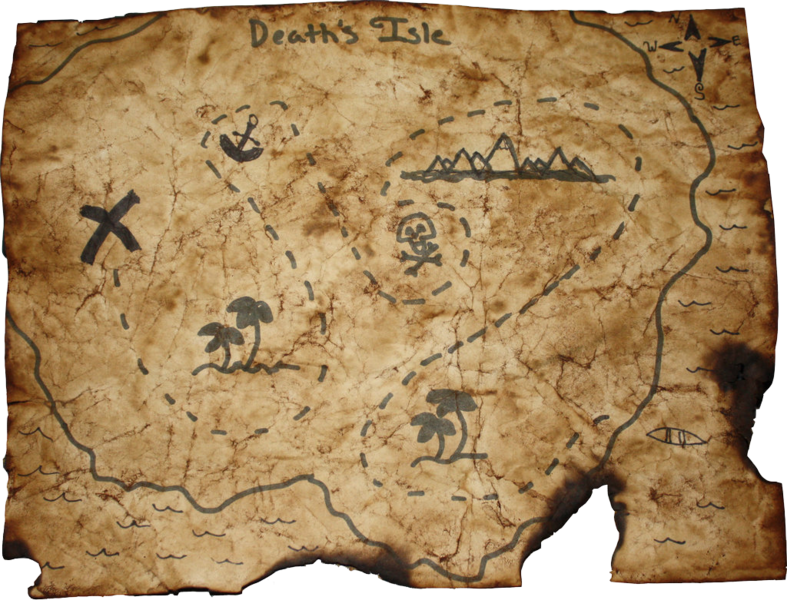 Death's Isle
N
W E
S